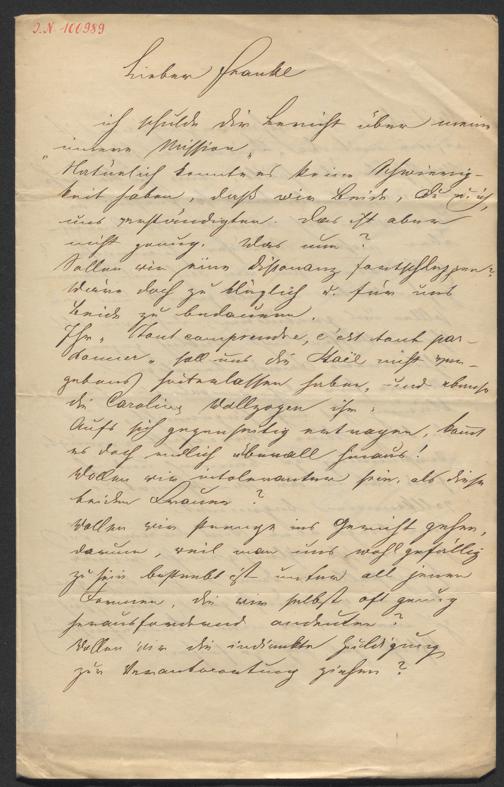 J.N. 100989
Lieber Frankl
ich schulde dir Bericht über meine
„innere Mission“
Natürlich konnte es keine Schwierig-
keit haben, daß wir beide, Du u. ich,
uns verständigten. Das ist aber
nicht genug. Was nun?
Sollen wir eine Dissonanz fortschleppen?
Wäre doch zu kläglich u. für uns
beide zu bedauern.
Ihr „Tout comprendre, c'est tout par-
donner“ soll uns die Staël nicht ver-
gebens hinterlassen haben, und ebenso
die Caroline Wollzogen ihr:
Aufs sich gegenseitig ertragen, kommt
es doch endlich überall heraus!
Wollen wir intoleranter sein, als diese
beiden Frauen?
Wollen wir strenge ins Gericht gehen,
darum, weil man uns wohlgefällig
zu sein bestrebt ist unter all jenen
Formen, die wir selbst oft genug
herausfordernd andeuten?
Wollen wir die indirekte Huldigung
zur Verantwortung ziehen?